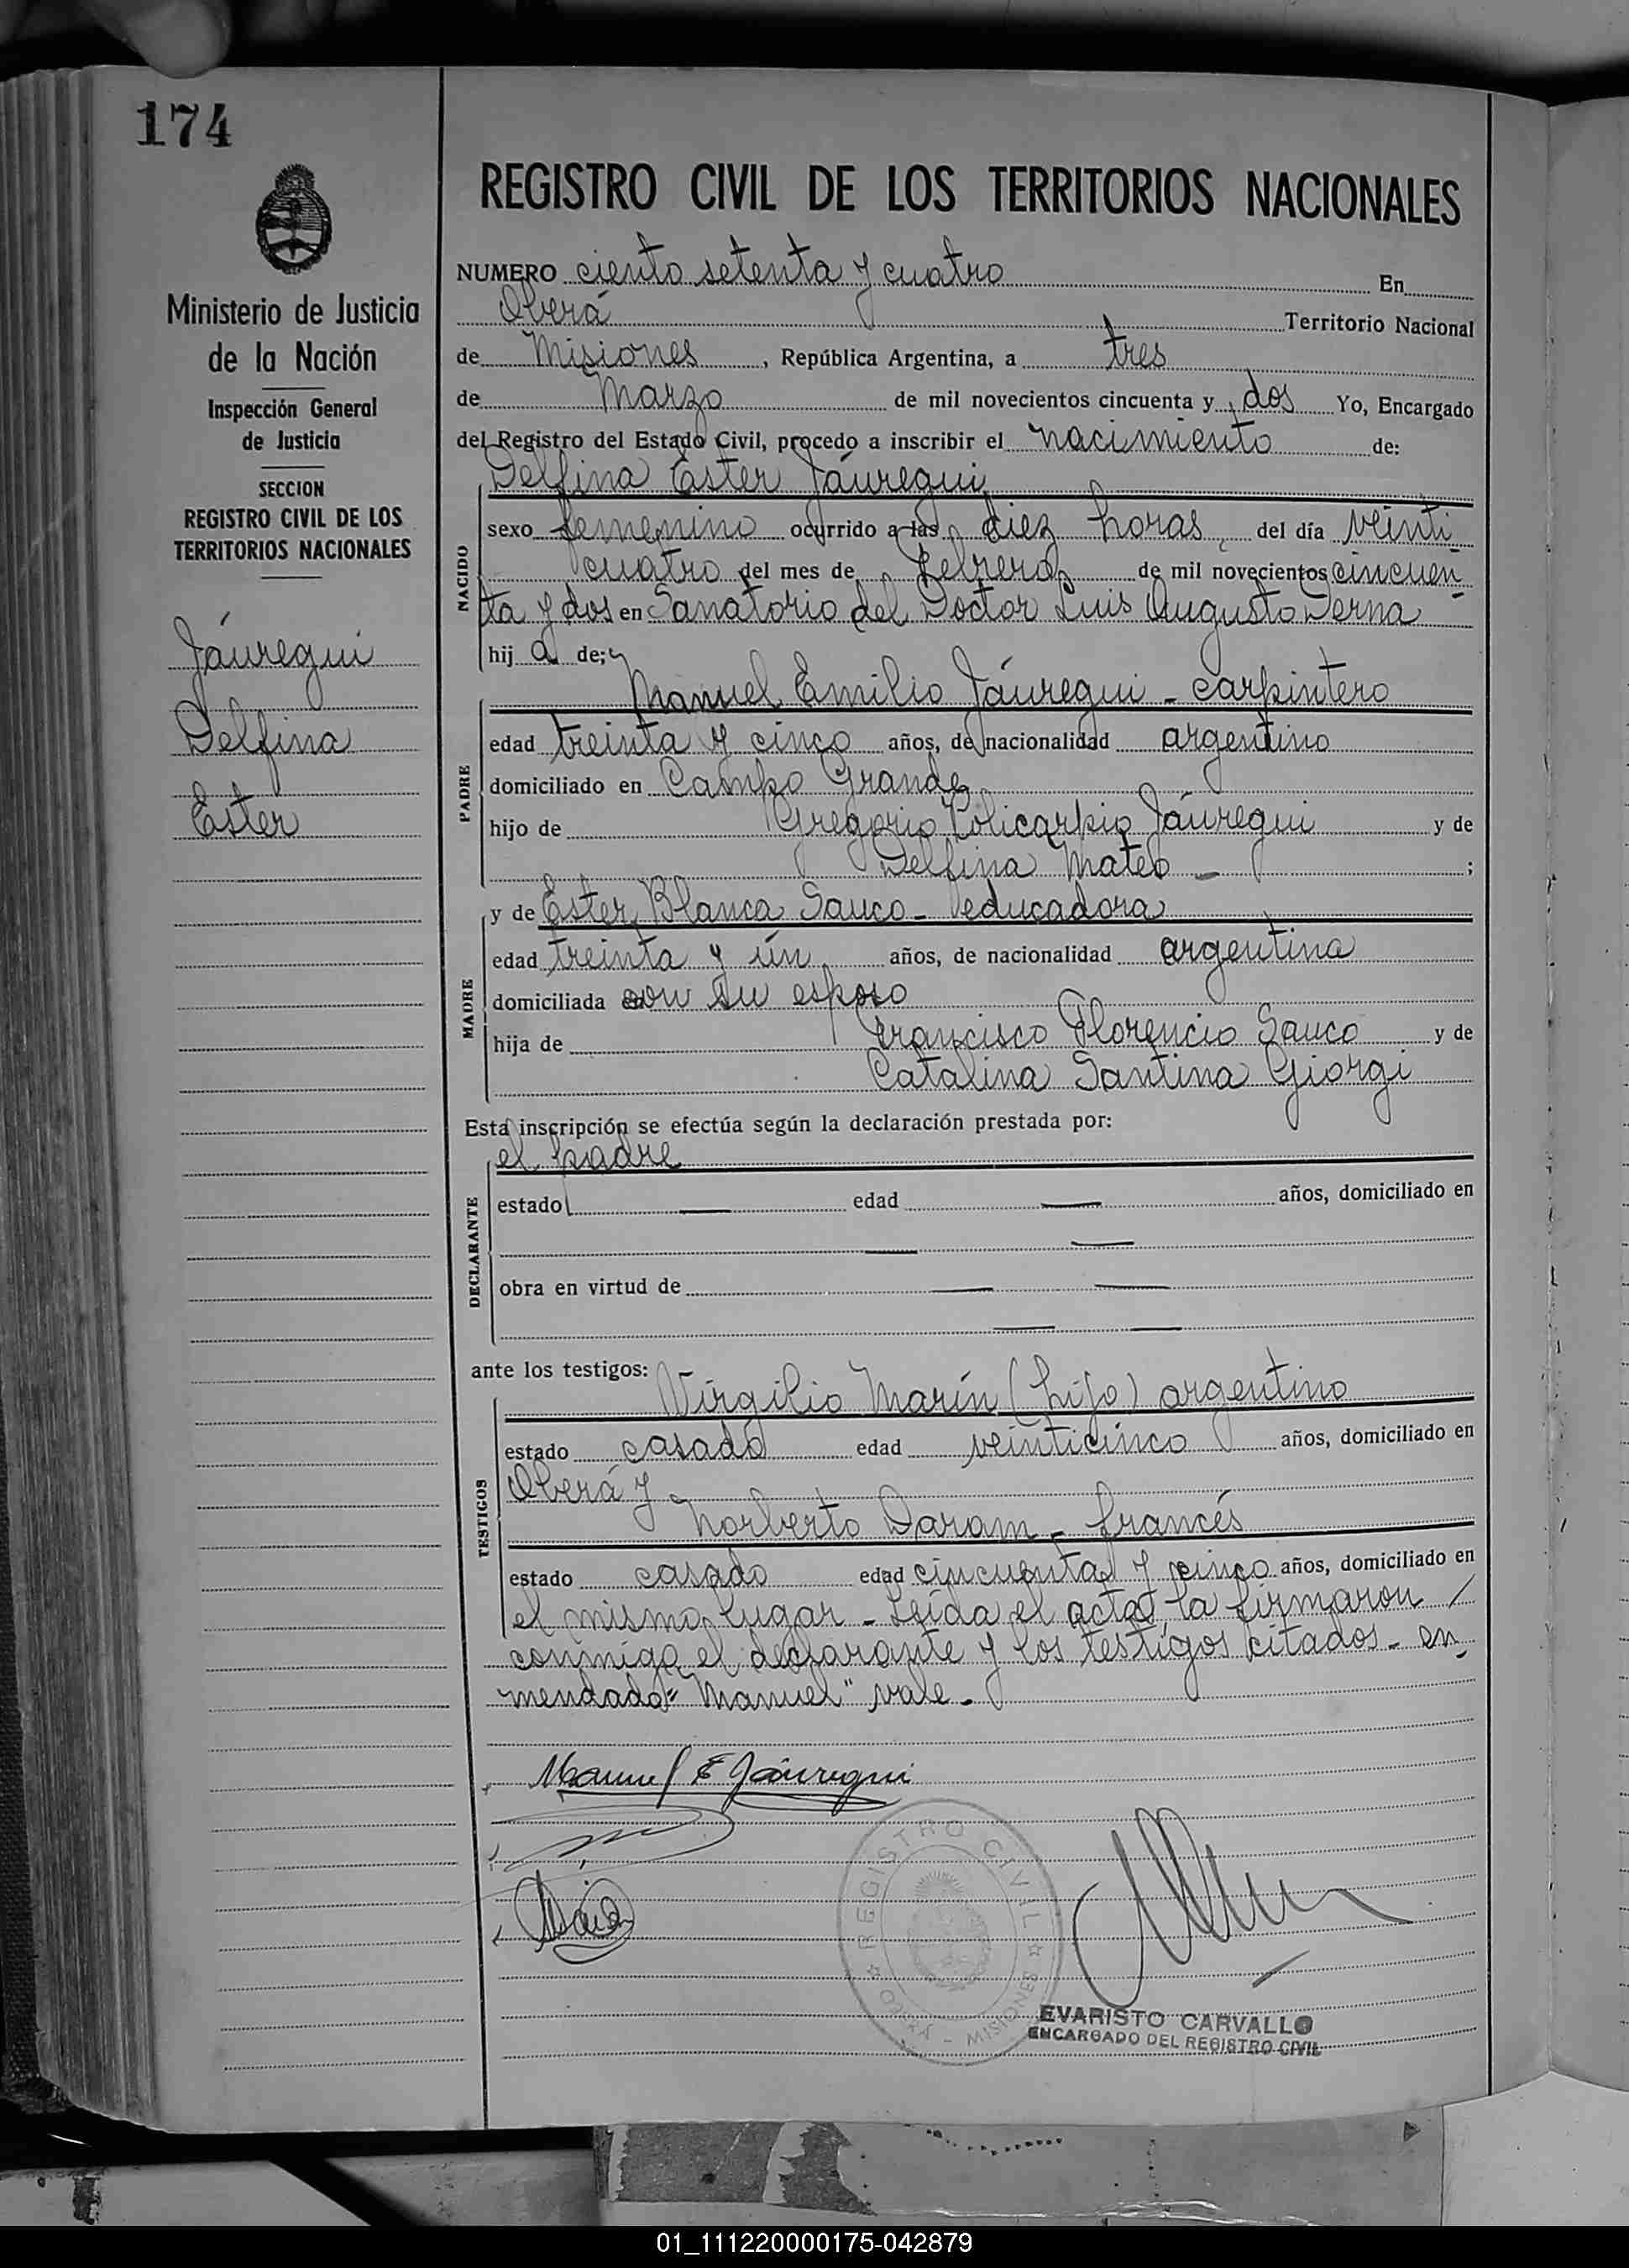 174
Ministerio de Justicia
de la Nación
Inspección General
de Justicia
SECCION
REGISTRO CIVIL DE LOS
TERRITORIOS NACIONALES
Jáuregui
Delfina
Ester
REGISTRO CIVIL DE LOS TERRITORIOS NACIONALES
NUMERO ciento setenta y cuatro En
Oberá Territorio Nacional
de Misiones, República Argentina, a tres
de Marzo de mil novecientos cincuenta y dos Yo, Encargado
del Registro del Estado Civil, procedo a inscribir el nacimiento de:
NACIDO
Delfina Ester Jáuregui
sexo femenino ocurrido a las diez horas del día veinti
cuatro del mes de Febrero de mil novecientos cincuen
ta y dos en Sanatorio del Doctor Luis Augusto Derna
hij a de;
PADRE
Manuel Emilio Jáuregui - carpintero
edad treinta y cinco años, de nacionalidad argentino
domiciliado en Campo Grande
hijo de Gregorio Policarpio Jáuregui y de
Delfina Mateo - ;
MADRE
y de Ester Blanca Sauco - educadora
edad treinta y ún años, de nacionalidad argentina
domiciliada con su esposo
hija de Francisco Florencio Sauco y de
Catalina Santina Giorgi
Esta inscripción se efectúa según la declaración prestada por:
DECLARANTE
el padre
estado — edad — años, domiciliado en
— —
obra en virtud de — —
— —
ante los testigos:
TESTIGOS
Virgilio Marín (hijo) argentino
estado casado edad veinticinco años, domiciliado en
Oberá y
Norberto Daram - francés
estado casado edad cincuenta y cinco años, domiciliado en
el mismo lugar - Leída el acta la firmaron /
conmigo el declarante y los testigos citados - en
mendado "Manuel" vale -
Manuel E Jáuregui
REGISTRO CIVIL
OBERÁ - MISIONES
EVARISTO CARVALLO
ENCARGADO DEL REGISTRO CIVIL
01_111220000175-042879